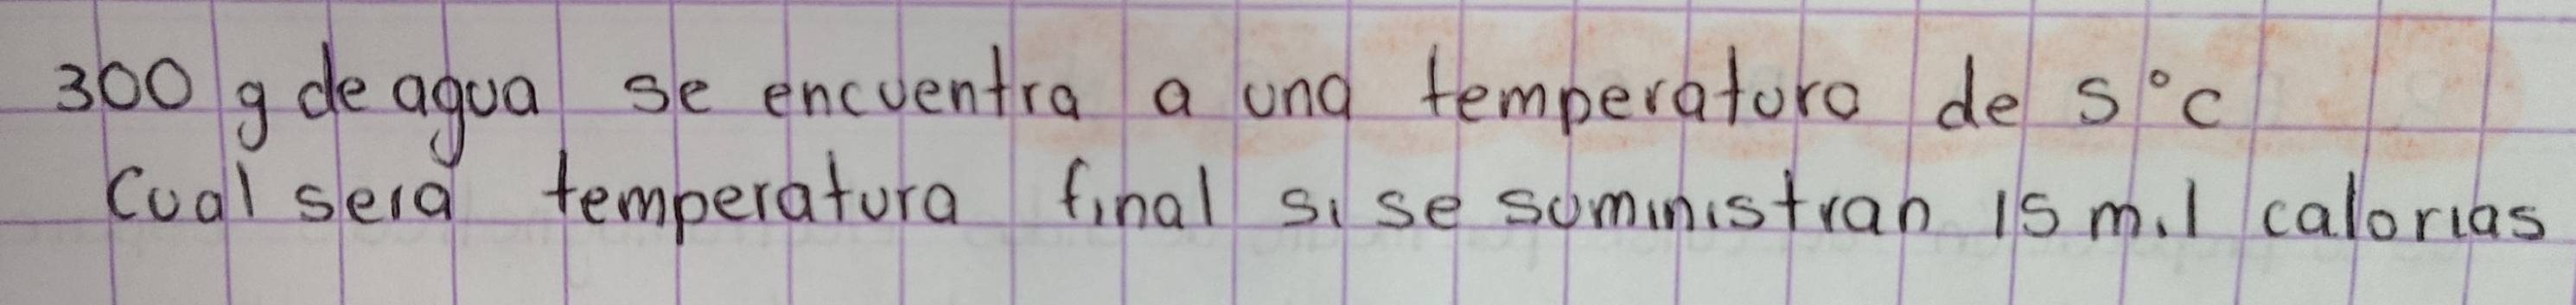 300 g de agua se encuentra a una temperatura de 5°C
Cual sera temperatura final si se suministran 15 mil calorias